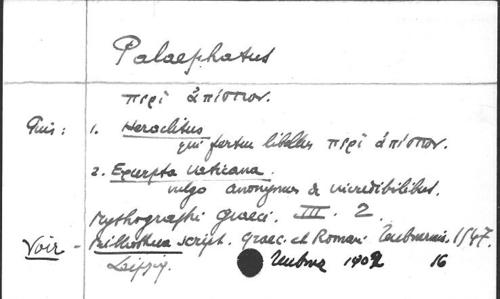 Palaephatus
περὶ ἀπίστων.
Puis : 1. Heraclitus
qui fertur libellus περὶ ἀπίστων.
2. Excerpta Vaticana.
vulgo anonymus de incredibilibus.
Mythographi graeci. III. 2.
Voir - Bibliotheca script. Graec. et Roman. Teubneriana. 1547.
Leipzig. Teubner 1902 16